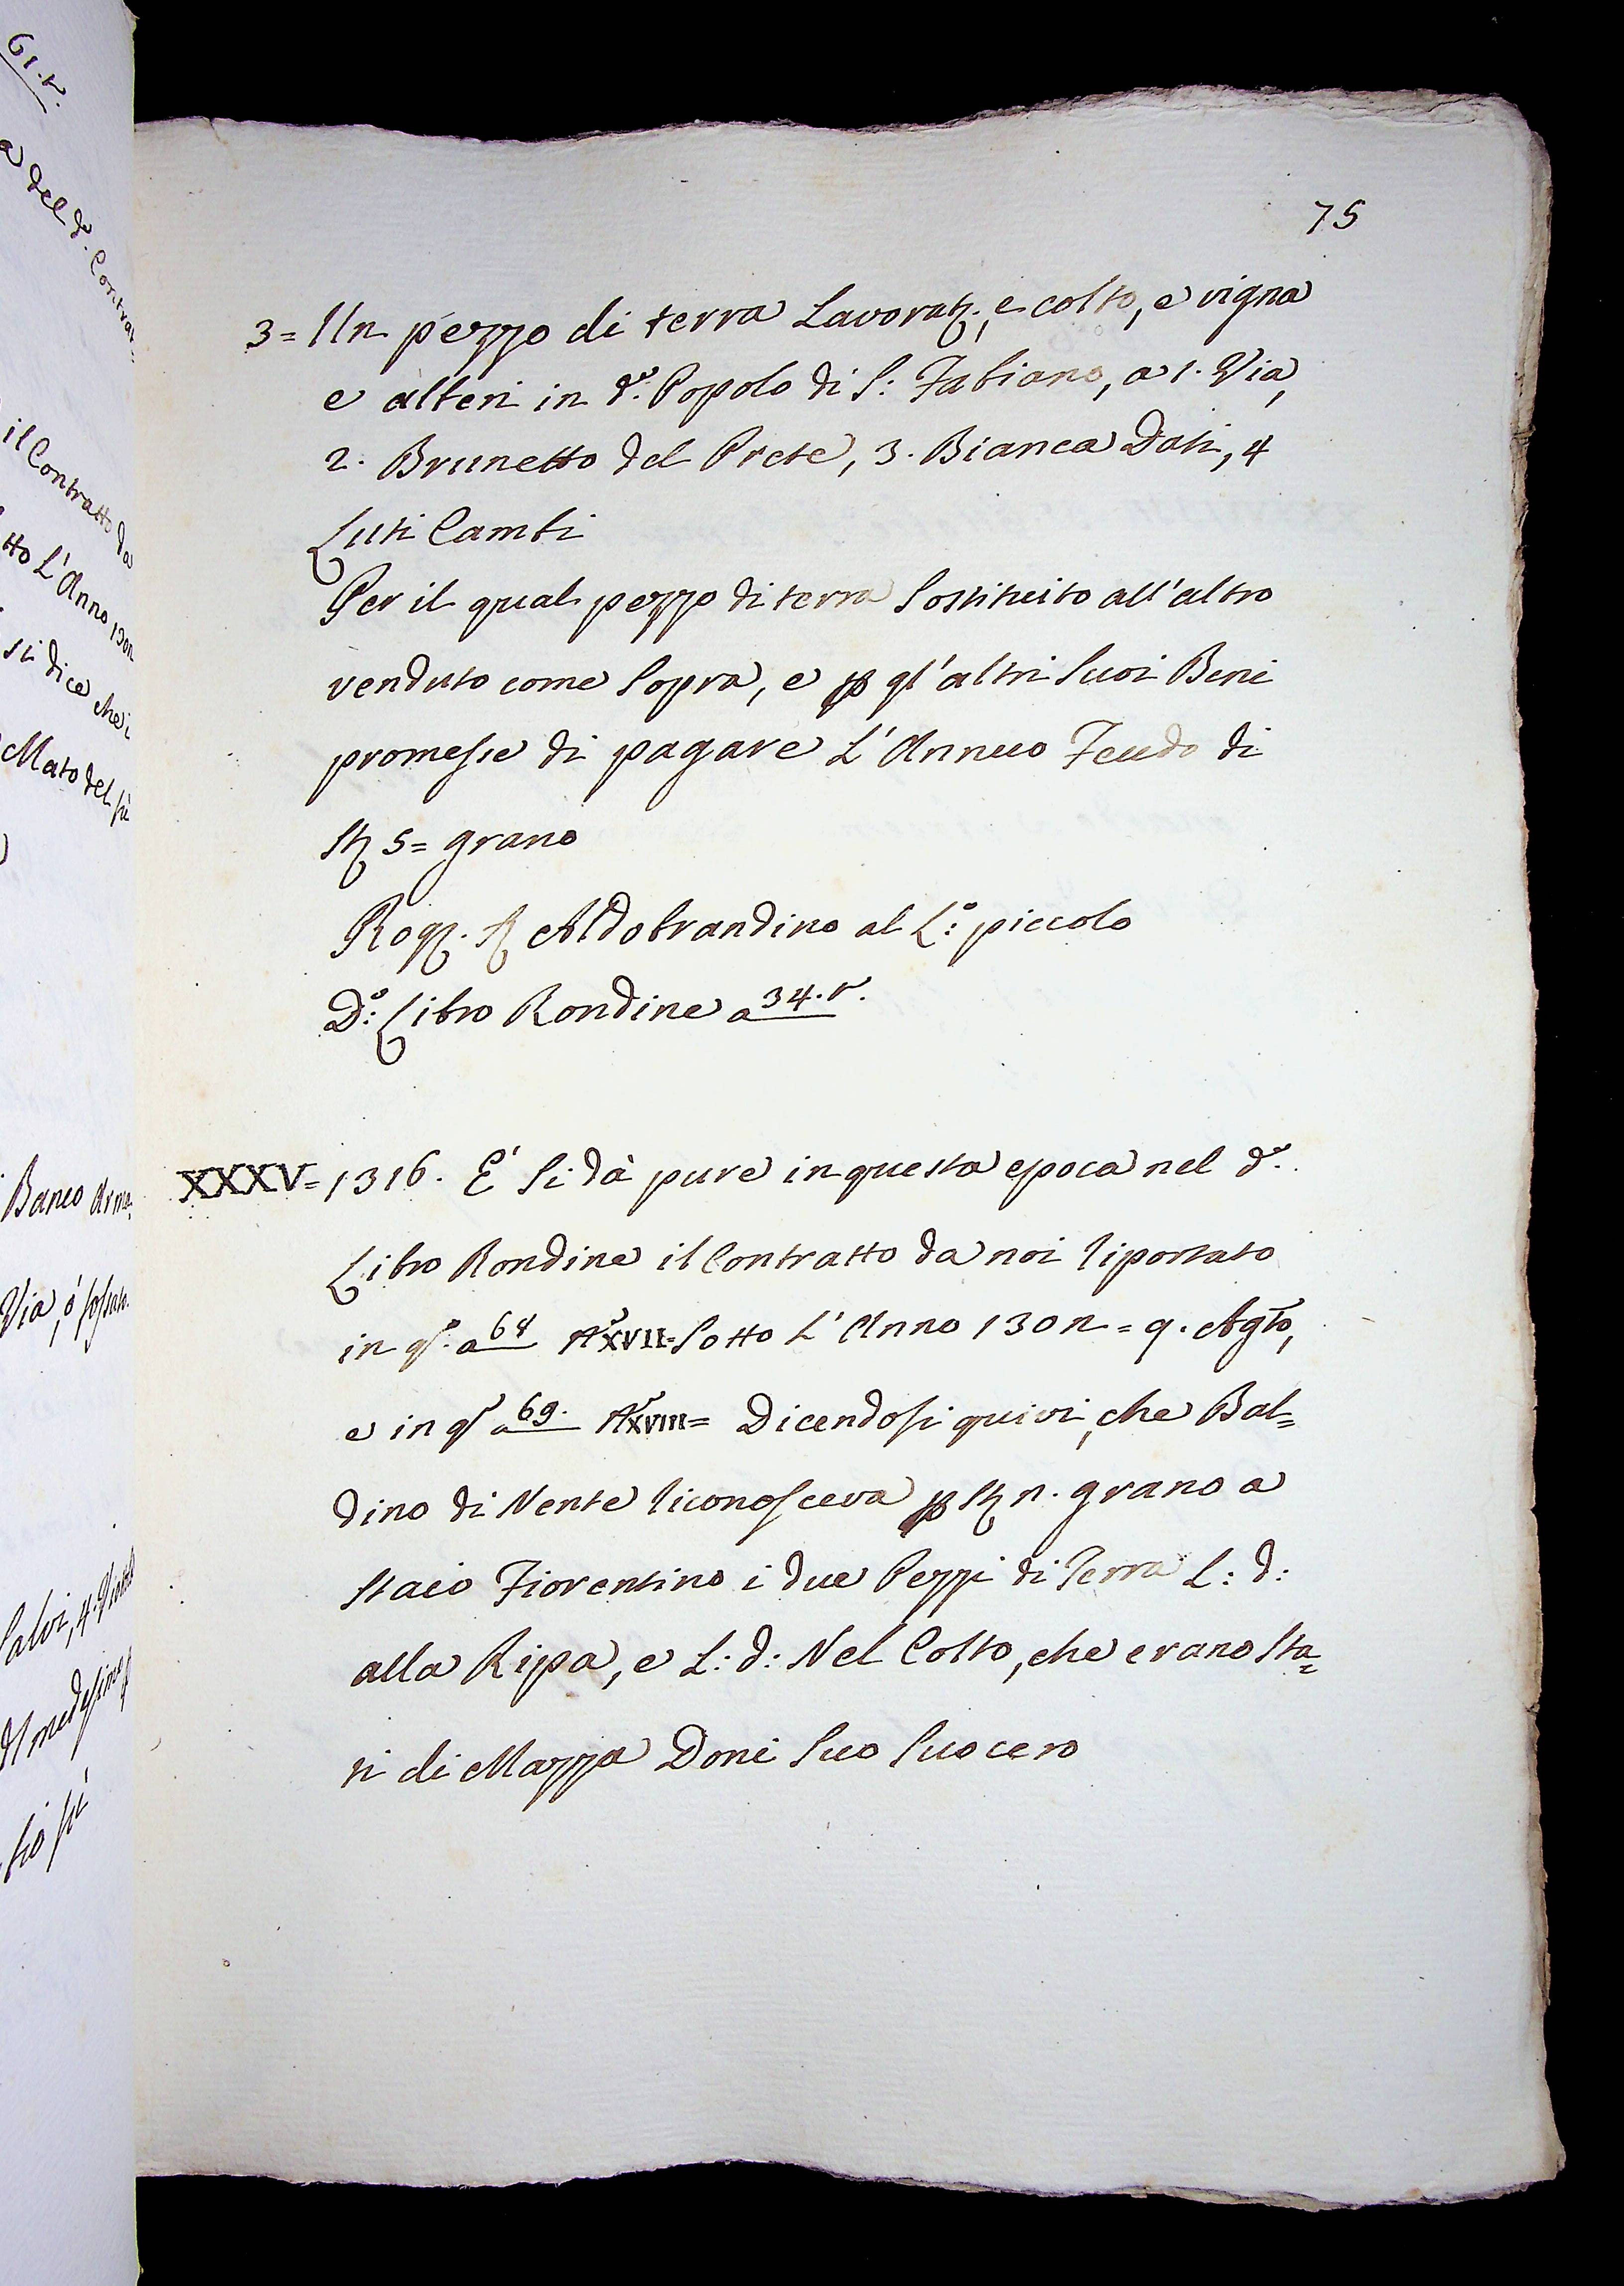 61.t.
a del dº. Contra=
il Contratto da
tto L'Anno 130n
si dice che i
Mato del fù
Banco Arma=
Via, ò fossato
Salvi, 4. 
Al medesimo
75
3= Un pezzo di terra Lavoratª., e colto, e vigna
e alberi in dº. Popolo di S: Fabiano, a 1. Via,
2. Brunetto del Prete, 3. Bianca Dati, 4
Luti Cambi
Per il qual pezzo di terra Sostituito all'altro
venduto come Sopra, e p gl'altri Suoi Beni
promesse di pagare L'Annuo Feudo di
Stª 5= grano
Rogº. Sr Aldobrandino al L:º piccolo
D:º Libro Rondine a 34.t.
XXXV= 1316. E' Si dà pure in questa epoca nel dº.
Libro Rondine il Contratto da noi riportato
in qº. a 68 Nº XVII= Sotto L'Anno 130n = 9. Agto,
e in qº a 69. Nº XVIII= Dicendosi quivi, che Bal=
dino di Nente riconosceva p Stª n. grano a
Staio Fiorentino i due Pezzi di Terra L: d:
alla Ripa, e L: d: Nel Colto, che erano sta=
ti di Mazza Doni Suo Suocero